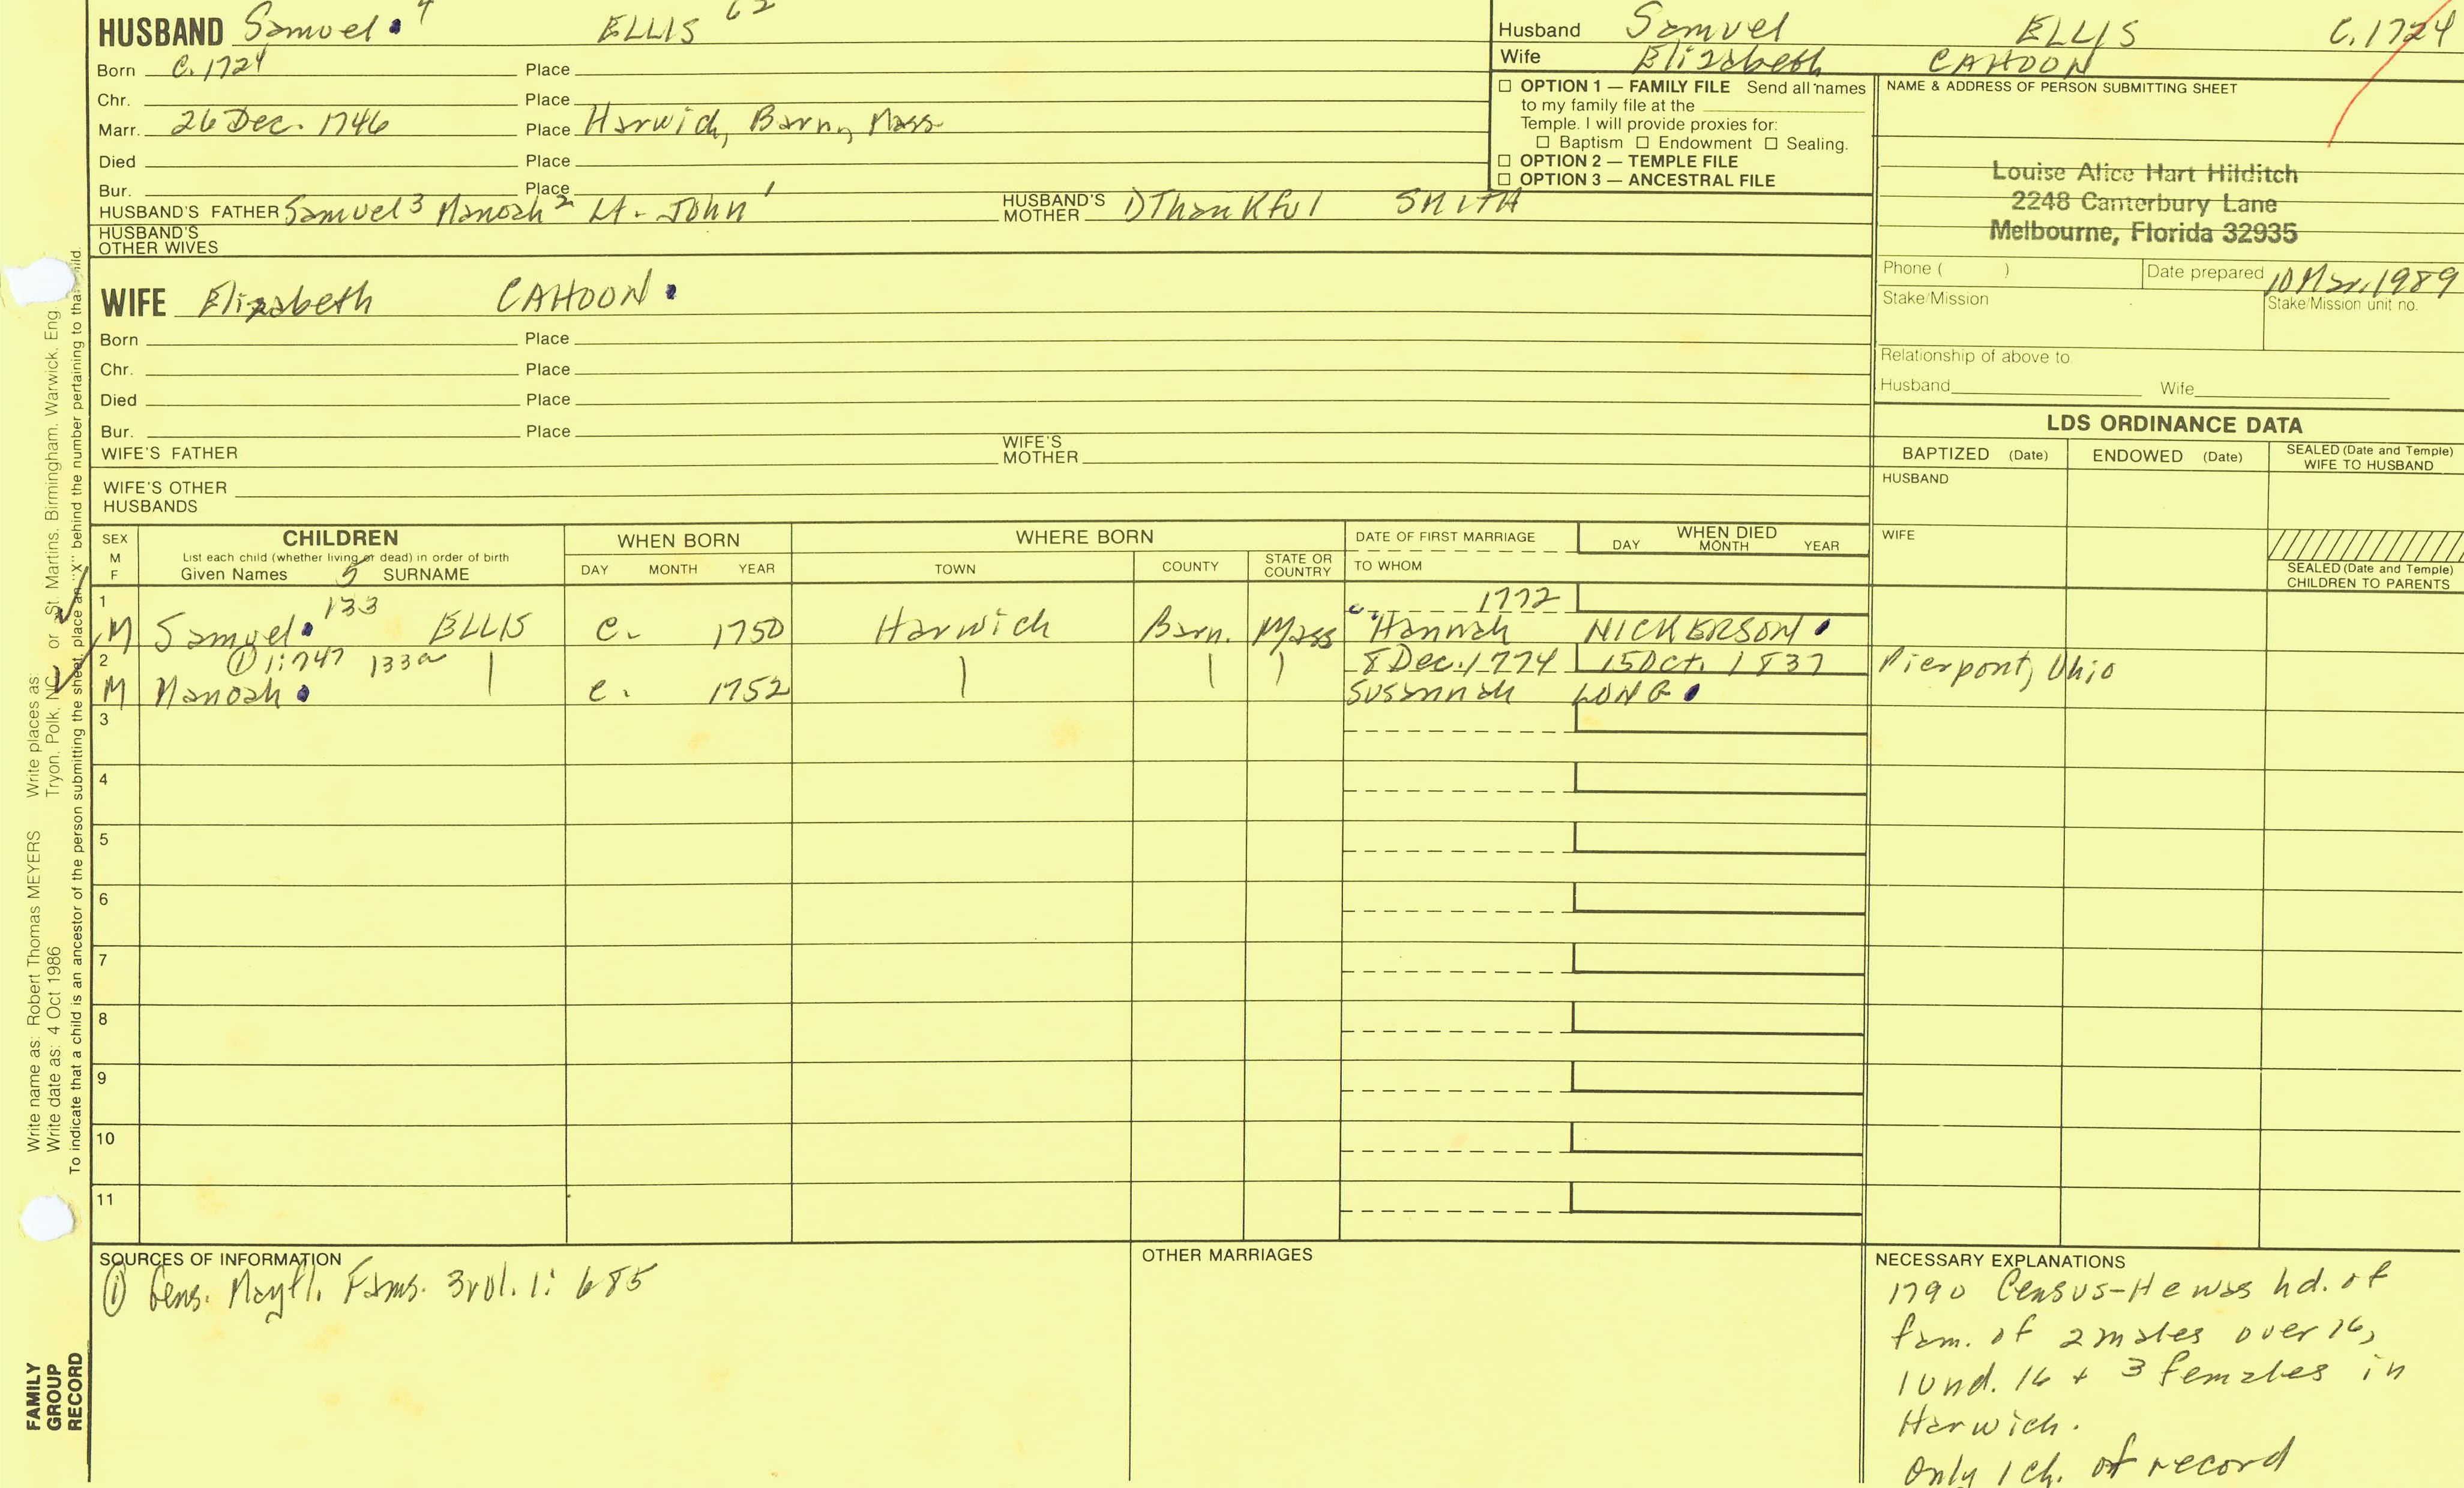 HUSBAND Samuel 4 ELLIS 62
Born C. 1724 Place
Chr. Place
Marr. 26 Dec. 1746 Place Harwich, Barn, Mass
Died Place
Bur. Place
HUSBAND'S FATHER Samuel 3 Manoah 2 Lt. John 1 HUSBAND'S MOTHER DThankful SMITH
HUSBAND'S OTHER WIVES
WIFE Elizabeth CAHOON
Born Place
Chr. Place
Died Place
Bur. Place
WIFE'S FATHER WIFE'S MOTHER
WIFE'S OTHER HUSBANDS
Husband Samuel ELLIS C. 1724
Wife Elizabeth CAHOON
☐ OPTION 1 — FAMILY FILE Send all names
to my family file at the
Temple. I will provide proxies for:
☐ Baptism ☐ Endowment ☐ Sealing.
☐ OPTION 2 — TEMPLE FILE
☐ OPTION 3 — ANCESTRAL FILE
NAME & ADDRESS OF PERSON SUBMITTING SHEET
Louise Alice Hart Hilditch
2248 Canterbury Lane
Melbourne, Florida 32935
Phone ( ) Date prepared 10 Mar. 1989
Stake/Mission Stake/Mission unit no.
Relationship of above to
Husband Wife
LDS ORDINANCE DATA
BAPTIZED (Date) ENDOWED (Date) SEALED (Date and Temple) WIFE TO HUSBAND
HUSBAND
WIFE
SEALED (Date and Temple) CHILDREN TO PARENTS
SEX M F
CHILDREN
List each child (whether living or dead) in order of birth
Given Names 5 SURNAME
WHEN BORN
DAY MONTH YEAR
WHERE BORN
TOWN COUNTY STATE OR COUNTRY
DATE OF FIRST MARRIAGE
TO WHOM
WHEN DIED
DAY MONTH YEAR
1 133 c. 1772
M Samuel ELLIS c. 1750 Harwich Barn. Mass Hannah NICKERSON
2 ① 1:747 133a 8 Dec. 1774 15 Oct. 1837 Pierpont, Ohio
M Manoah c. 1752 Susannah LONG
3
4
5
6
7
8
9
10
11
SOURCES OF INFORMATION
① Gens. Mayfl. Fams. 3 vol. 1: 685
OTHER MARRIAGES
NECESSARY EXPLANATIONS
1790 Census-He was hd. of
fam. of 2 males over 16,
1 und. 16 + 3 females in
Harwich.
Only 1 ch. of record
Write name as: Robert Thomas MEYERS Write places as:
Write date as: 4 Oct 1986 Tryon, Polk, NC or St. Martins, Birmingham, Warwick, Eng.
To indicate that a child is an ancestor of the person submitting the sheet, place an "X" behind the number pertaining to that child.
FAMILY
GROUP
RECORD